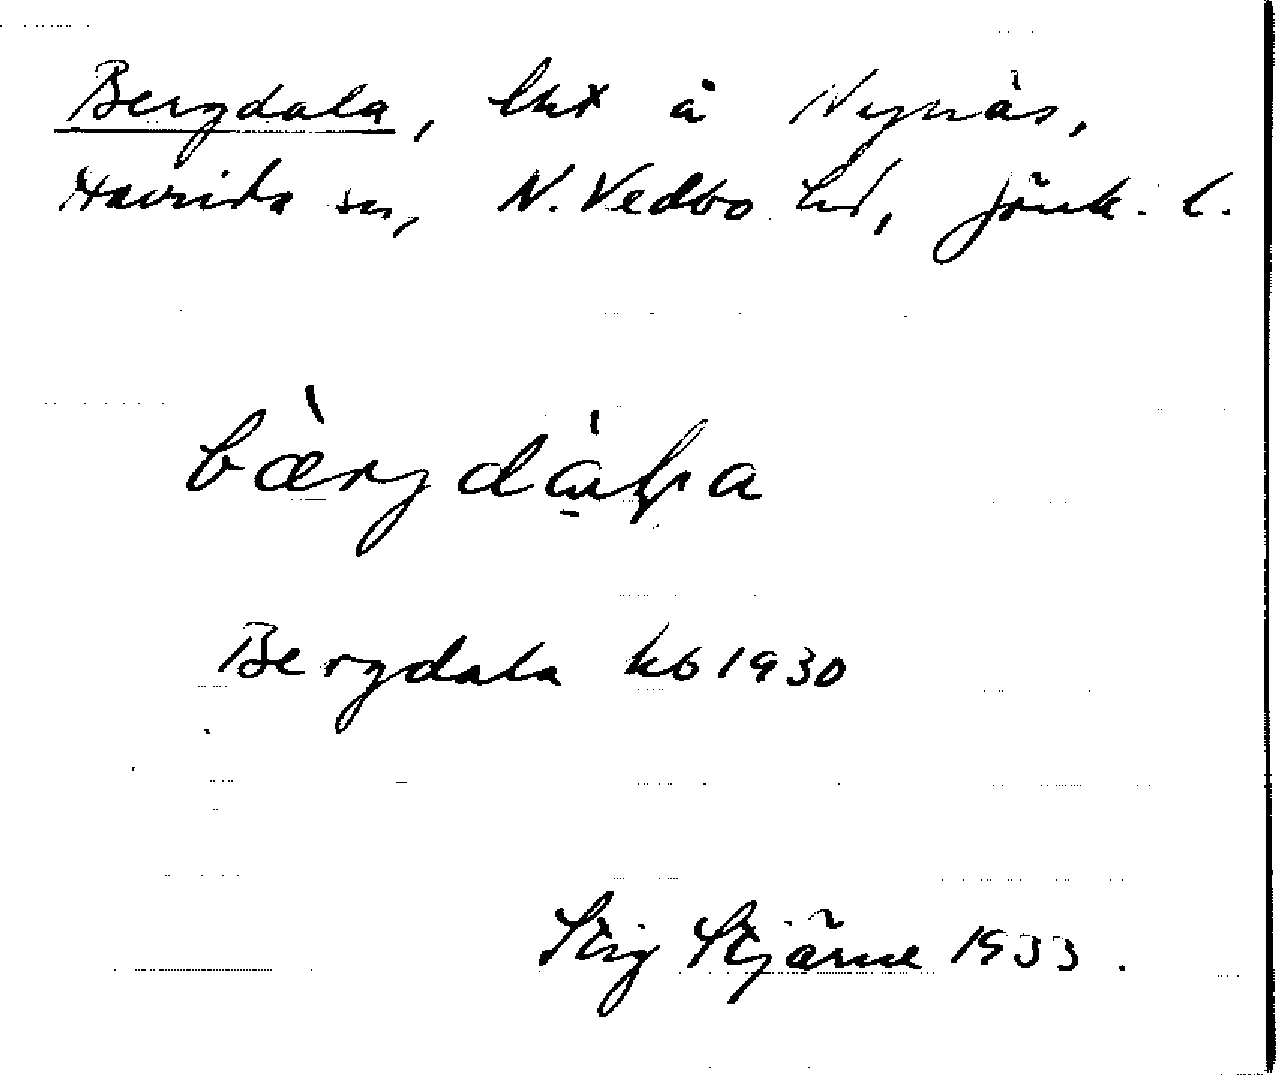 Bergdala, lht å Nynäs,
Haurida sn, N. Vedbo hd, Jönk. l.
bærgdaɽa
Bergdala kb 1930
Stig Stjärne 1933.